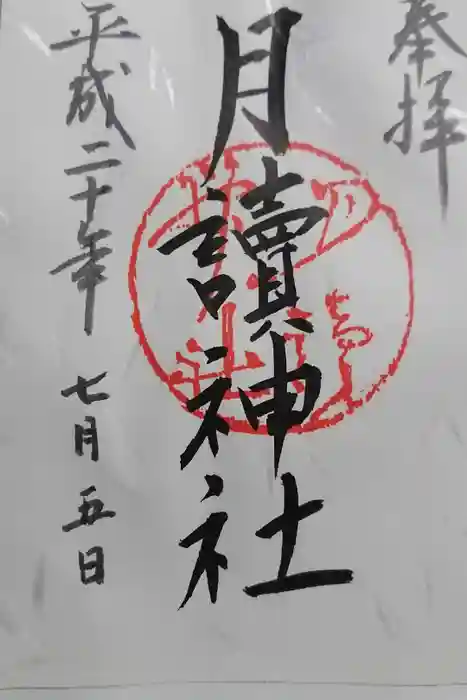 奉拝
月讀神社
平成二十年 七月五日